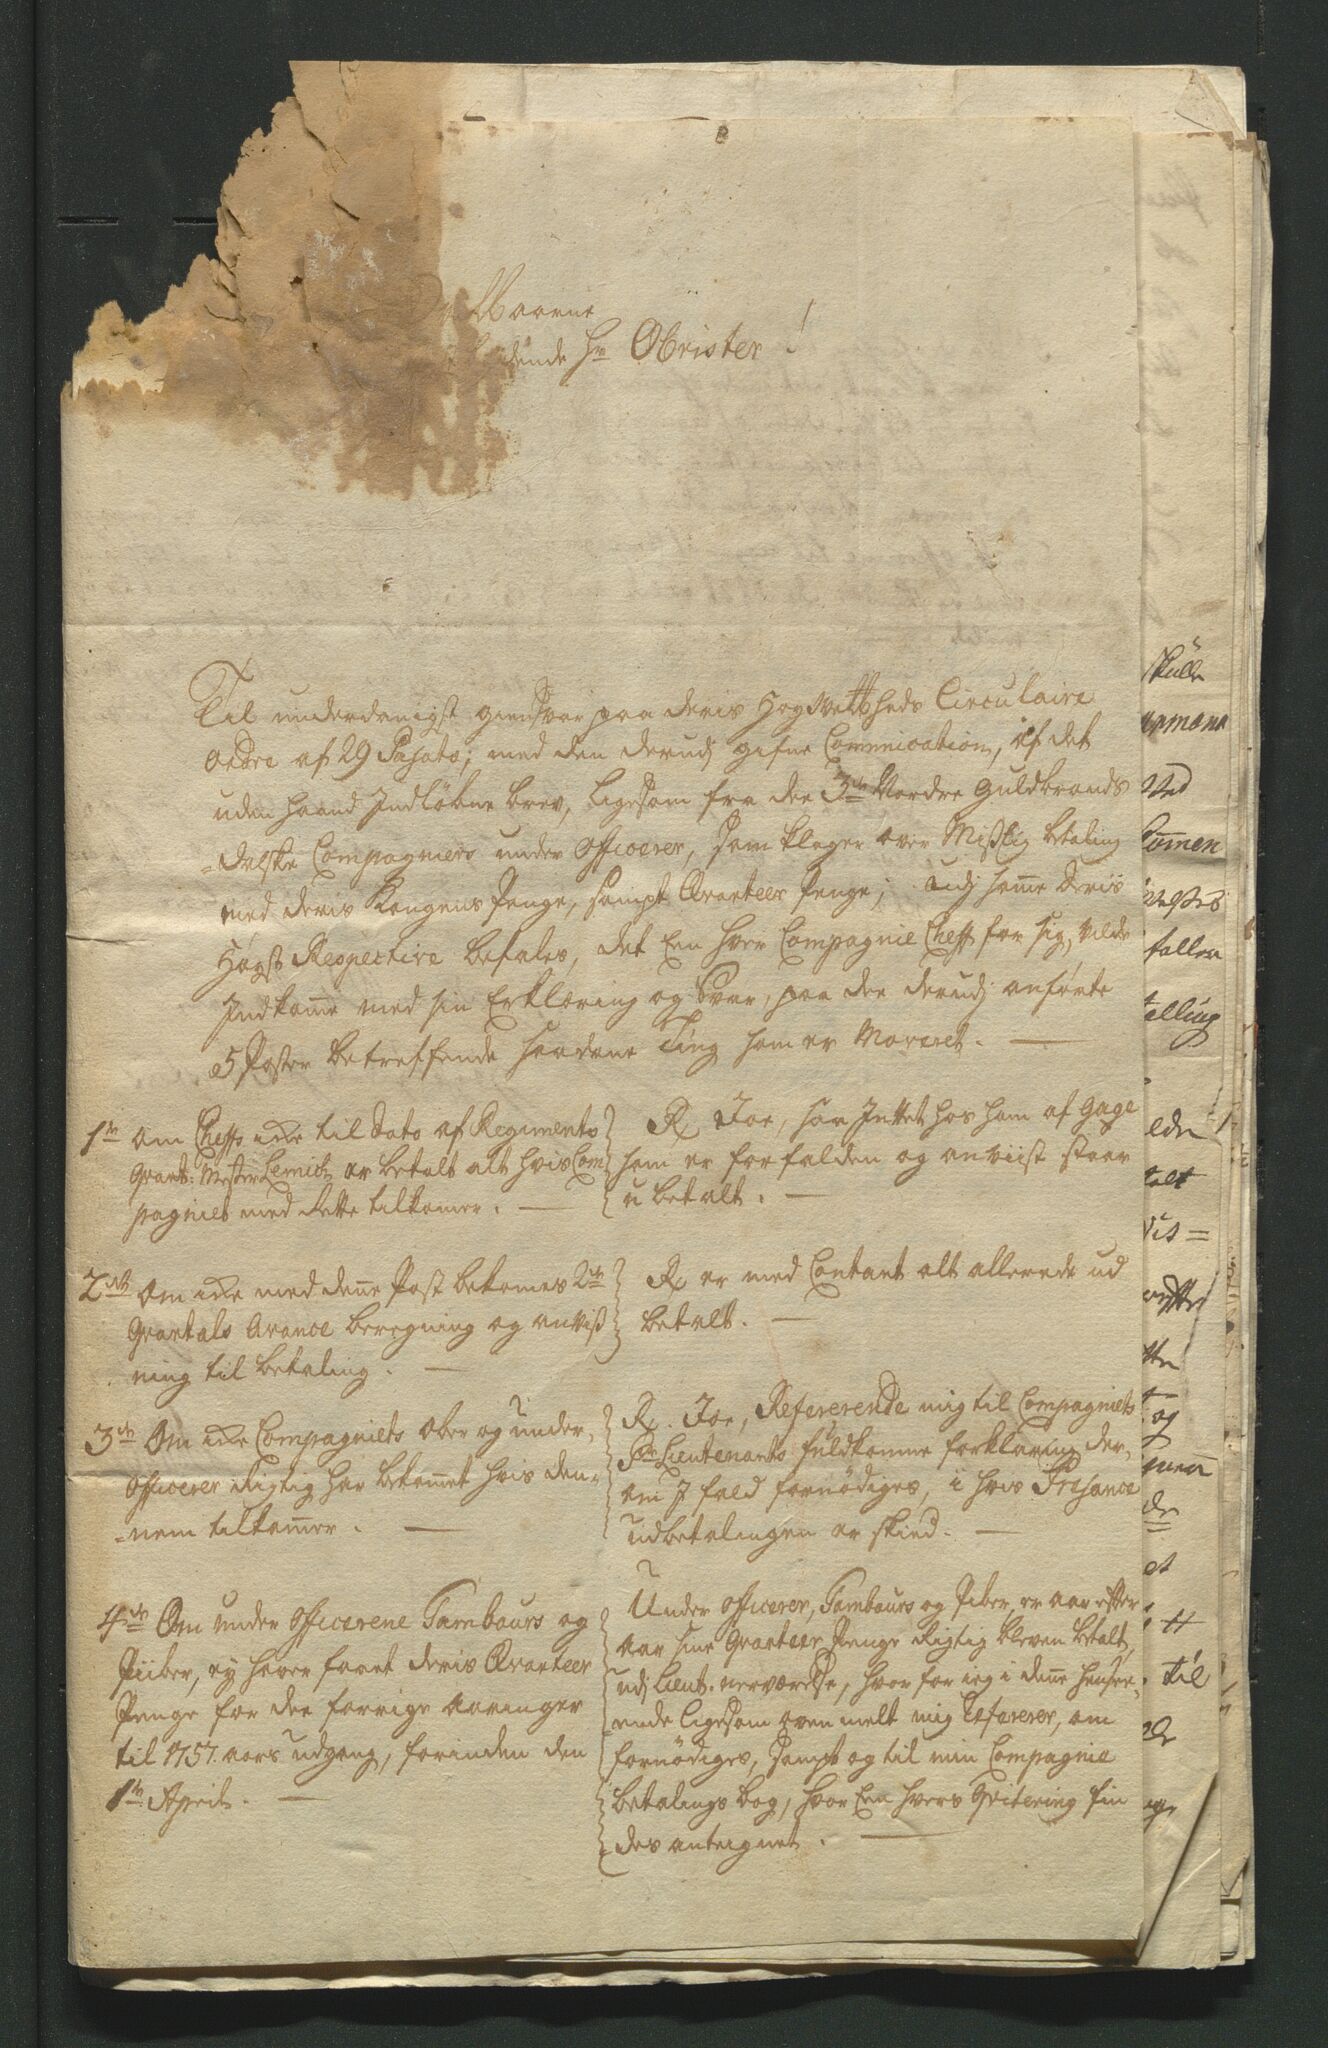 Baarne
dende Hr Obrister!
Til underdanigst giensvar paa deris HøgVelbHeds Circulaire
Ordre af 29 Pasato; med den derudj gifne Communication, af det
uden haand Indkobne brev, ligesom fra dee 3de Nordre Guldbrands
=dalske Compagniers under Officerer, som klager over Mißlig betaling
med deris Kongens Penge, sampt Qvarteer Penge; udj hvilke Deris
Høgst Respective befales, det Een hver Compagnie Cheff for sig, vilde
Indkomme med sin Erklæring og Svar, paa dee derudj anførte
5 Poster betreffende saadane Ting som er Moveret.
1te om Cheffs icke til Dato af Regiments
Qvart: Mester Lemich er betalt alt hvis Com
pagniet med rette tilkomer.
R Joe, har Intet hos ham af Gage
som er forfalden og anviist staar
ubetalt.
2det Om icke med denne Post bekomes 2de
Qvartals Avance beregning og anviß
ning til betaling.
R er med Contant alt allerede ud
betalt.
3de Om icke Compagniets Ober og under
Officerer Rigtig har bekommet hvis den=
=nem tilkommer.
R. Joe, Refererende mig til Compagniets
Pr Lieutenants fuldkomne forklaring der
om J fald fornødiges, i hvis Presance
udbetalingen er skeed.
4de Om under Officerene Tambours og
Piiber, ej haver faaet deris Qvarteer
Penge for dee forrige Aaringer
til 1757. aars udgang, forinden den
1te April.
Under Officerer, Tambours og Piber er aar efter
aar sine Qvarteer Penge Rigtig bleven betalt,
udj Lieut. nerværelse, hvor for ieg i denne henseer
ende ligesom oven melt mig Refererer, om
fornødiges, sampt og til min Compagnie
betalings bog, hvor Een hvers Qvitering fin
des anteignet.
skulle
Ved
fallen
alling
til
og